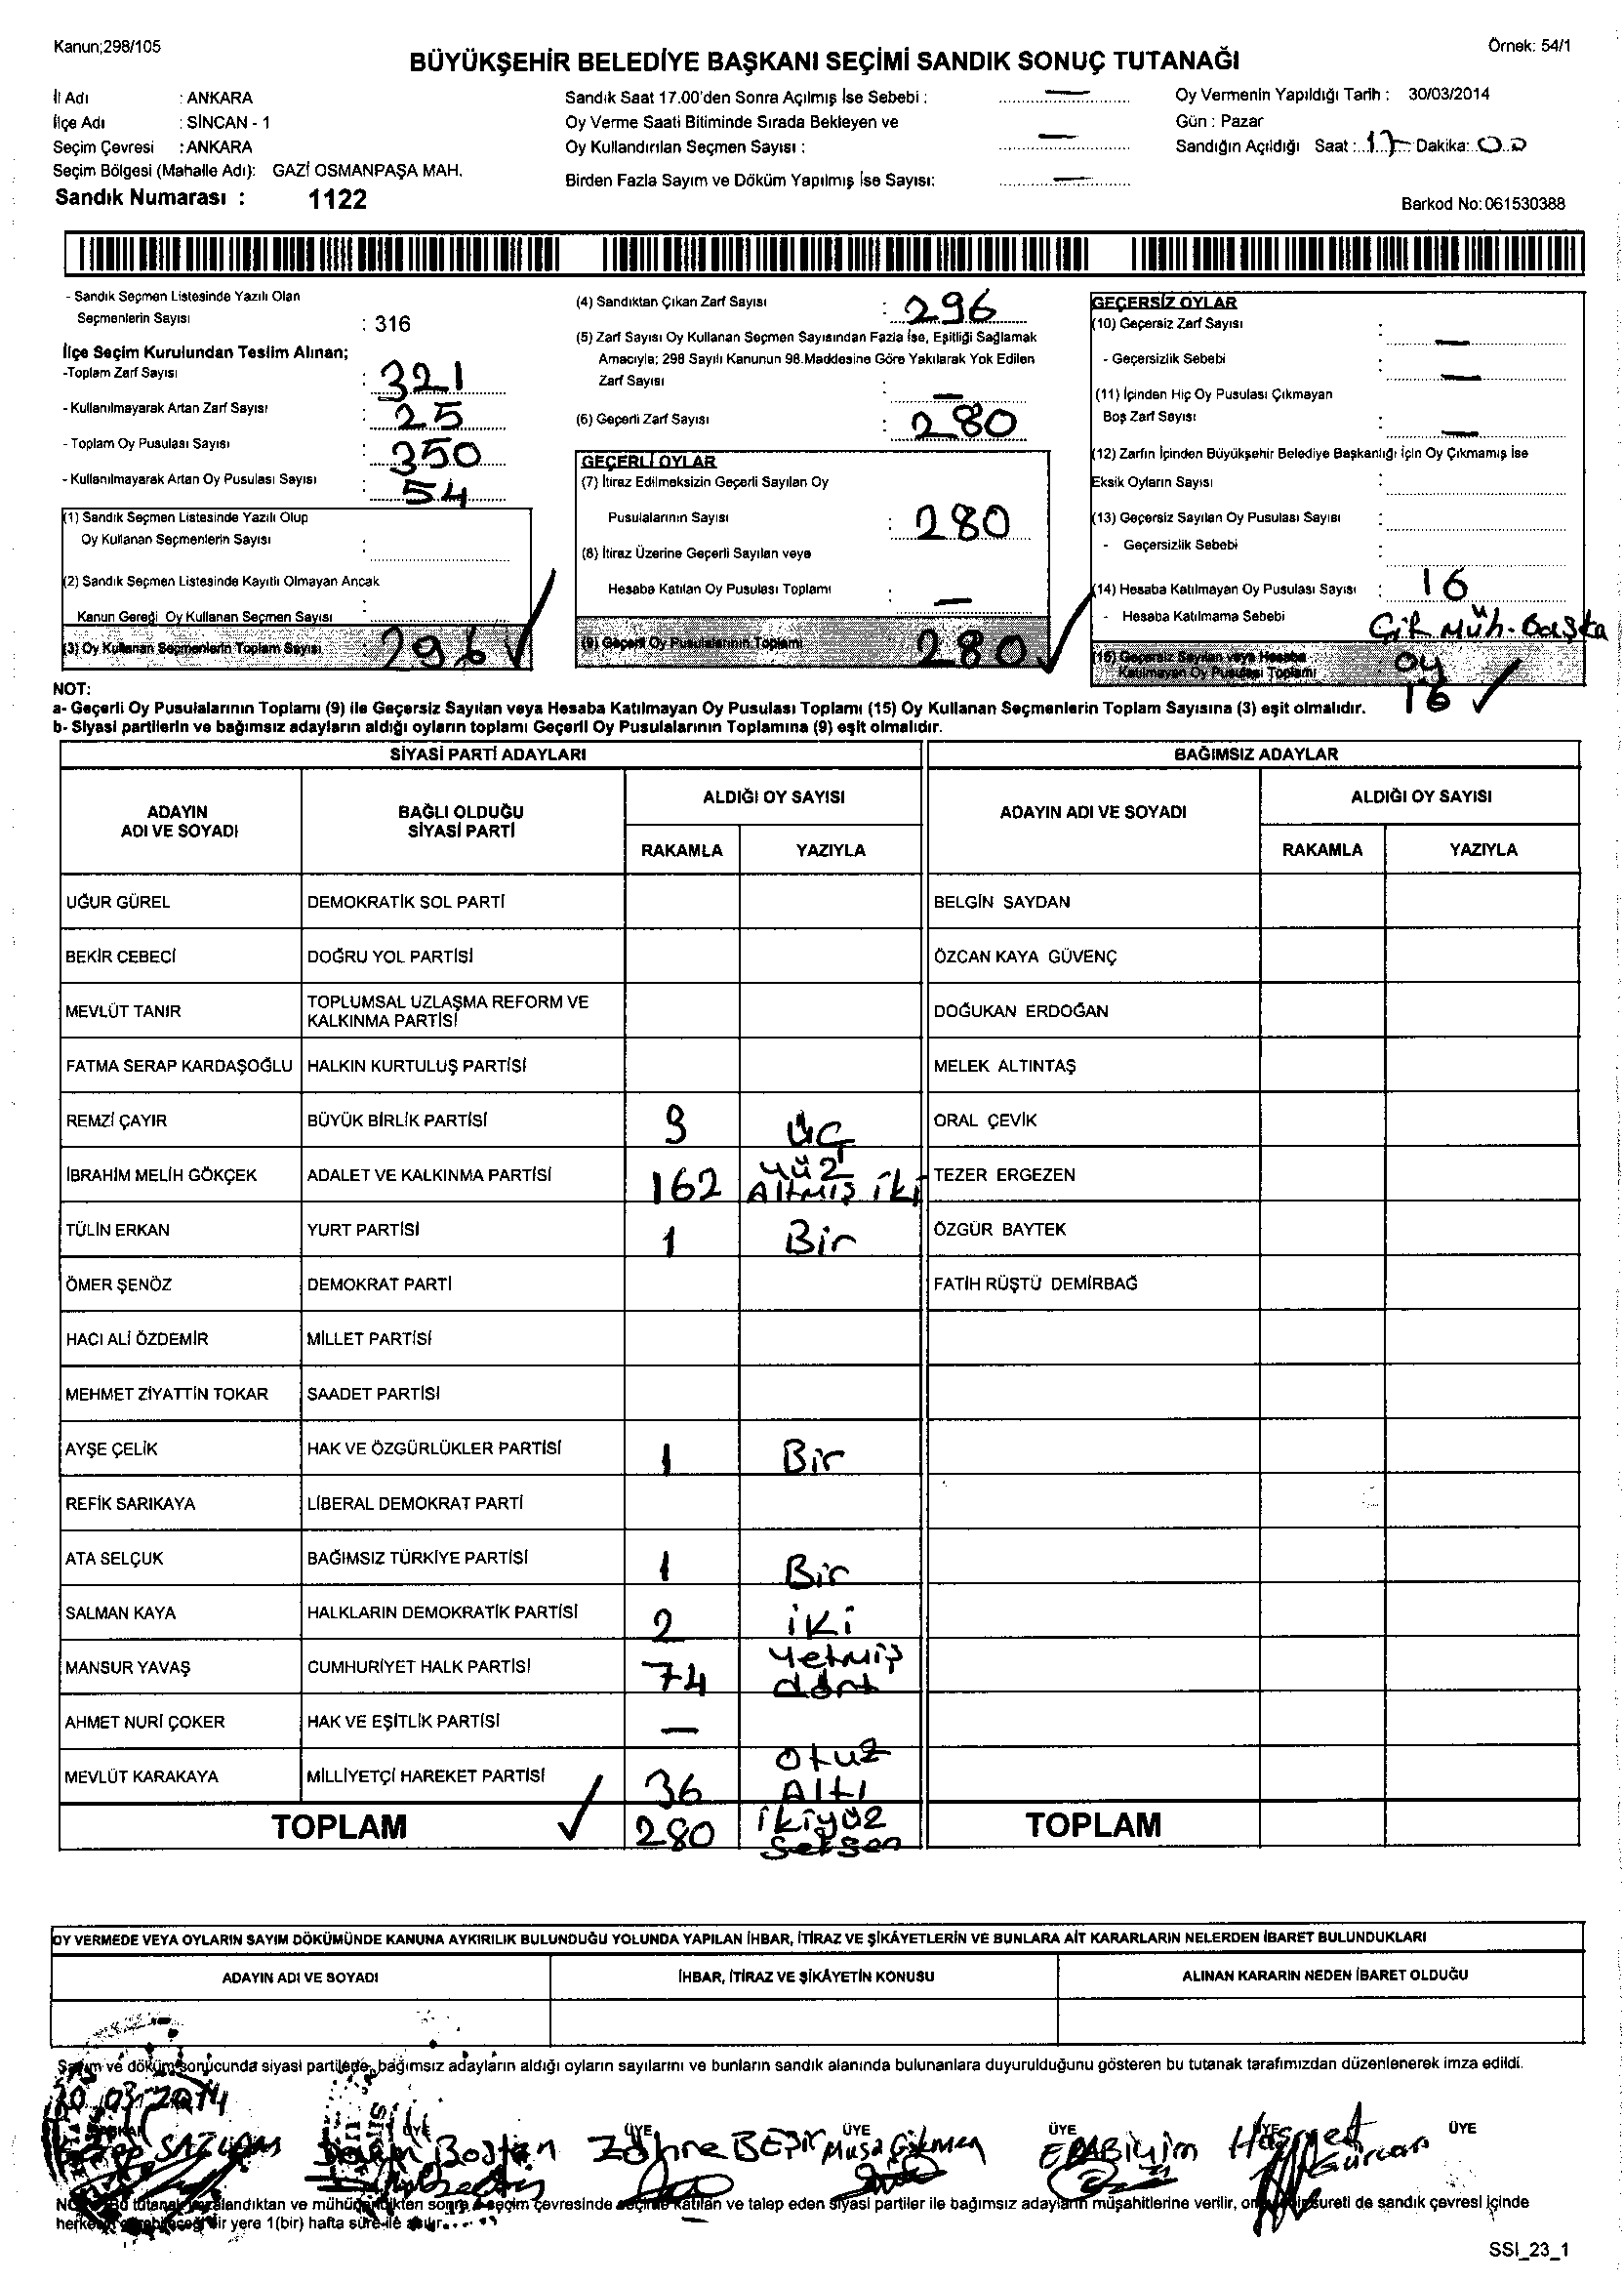 Kanun;298/105
Örnek: 54/1
BÜYÜKŞEHİR BELEDİYE BAŞKANI SEÇİMİ SANDIK SONUÇ TUTANAĞI
İl Adı : ANKARA
İlçe Adı : SİNCAN - 1
Seçim Çevresi : ANKARA
Seçim Bölgesi (Mahalle Adı): GAZİ OSMANPAŞA MAH.
Sandık Numarası : 1122
Sandık Saat 17.00'den Sonra Açılmış İse Sebebi : —
Oy Verme Saati Bitiminde Sırada Bekleyen ve
Oy Kullandırılan Seçmen Sayısı : —
Birden Fazla Sayım ve Döküm Yapılmış İse Sayısı: —
Oy Vermenin Yapıldığı Tarih : 30/03/2014
Gün : Pazar
Sandığın Açıldığı Saat : 17 Dakika: 00
Barkod No: 061530388
- Sandık Seçmen Listesinde Yazılı Olan
Seçmenlerin Sayısı : 316
İlçe Seçim Kurulundan Teslim Alınan;
-Toplam Zarf Sayısı : 321
- Kullanılmayarak Artan Zarf Sayısı : 25
- Toplam Oy Pusulası Sayısı : 350
- Kullanılmayarak Artan Oy Pusulası Sayısı : 54
(1) Sandık Seçmen Listesinde Yazılı Olup
Oy Kullanan Seçmenlerin Sayısı :
(2) Sandık Seçmen Listesinde Kayıtlı Olmayan Ancak
Kanun Gereği Oy Kullanan Seçmen Sayısı :
(3) Oy Kullanan Seçmenlerin Toplam Sayısı 296
(4) Sandıktan Çıkan Zarf Sayısı : 296
(5) Zarf Sayısı Oy Kullanan Seçmen Sayısından Fazla İse, Eşitliği Sağlamak
Amacıyla; 298 Sayılı Kanunun 98.Maddesine Göre Yakılarak Yok Edilen
Zarf Sayısı : —
(6) Geçerli Zarf Sayısı : 280
GEÇERLİ OYLAR
(7) İtiraz Edilmeksizin Geçerli Sayılan Oy
Pusulalarının Sayısı : 280
(8) İtiraz Üzerine Geçerli Sayılan veya
Hesaba Katılan Oy Pusulası Toplamı : —
(9) Geçerli Oy Pusulalarının Toplamı 280
GEÇERSİZ OYLAR
(10) Geçersiz Zarf Sayısı : —
- Geçersizlik Sebebi : —
(11) İçinden Hiç Oy Pusulası Çıkmayan
Boş Zarf Sayısı : —
(12) Zarfın İçinden Büyükşehir Belediye Başkanlığı İçin Oy Çıkmamış İse
Eksik Oyların Sayısı :
(13) Geçersiz Sayılan Oy Pusulası Sayısı :
- Geçersizlik Sebebi :
(14) Hesaba Katılmayan Oy Pusulası Sayısı : 16
- Hesaba Katılmama Sebebi Çift Müh. Başka
oy
(15) Geçersiz Sayılan veya Hesaba
Katılmayan Oy Pusulası Toplamı 16
NOT:
a- Geçerli Oy Pusulalarının Toplamı (9) ile Geçersiz Sayılan veya Hesaba Katılmayan Oy Pusulası Toplamı (15) Oy Kullanan Seçmenlerin Toplam Sayısına (3) eşit olmalıdır.
b- Siyasi partilerin ve bağımsız adayların aldığı oyların toplamı Geçerli Oy Pusulalarının Toplamına (9) eşit olmalıdır.
SİYASİ PARTİ ADAYLARI
BAĞIMSIZ ADAYLAR
ADAYIN ADI VE SOYADI
BAĞLI OLDUĞU SİYASİ PARTİ
ALDIĞI OY SAYISI
RAKAMLA YAZIYLA
ADAYIN ADI VE SOYADI
ALDIĞI OY SAYISI
RAKAMLA YAZIYLA
UĞUR GÜREL DEMOKRATİK SOL PARTİ BELGİN SAYDAN
BEKİR CEBECİ DOĞRU YOL PARTİSİ ÖZCAN KAYA GÜVENÇ
MEVLÜT TANIR TOPLUMSAL UZLAŞMA REFORM VE KALKINMA PARTİSİ DOĞUKAN ERDOĞAN
FATMA SERAP KARDAŞOĞLU HALKIN KURTULUŞ PARTİSİ MELEK ALTINTAŞ
REMZİ ÇAYIR BÜYÜK BİRLİK PARTİSİ 3 üç ORAL ÇEVİK
İBRAHİM MELİH GÖKÇEK ADALET VE KALKINMA PARTİSİ 162 yüz Altmış iki TEZER ERGEZEN
TÜLİN ERKAN YURT PARTİSİ 1 Bir ÖZGÜR BAYTEK
ÖMER ŞENÖZ DEMOKRAT PARTİ FATİH RÜŞTÜ DEMİRBAĞ
HACI ALİ ÖZDEMİR MİLLET PARTİSİ
MEHMET ZİYATTİN TOKAR SAADET PARTİSİ
AYŞE ÇELİK HAK VE ÖZGÜRLÜKLER PARTİSİ 1 Bir
REFİK SARIKAYA LİBERAL DEMOKRAT PARTİ
ATA SELÇUK BAĞIMSIZ TÜRKİYE PARTİSİ 1 Bir
SALMAN KAYA HALKLARIN DEMOKRATİK PARTİSİ 2 iki
MANSUR YAVAŞ CUMHURİYET HALK PARTİSİ 74 Yetmiş dört
AHMET NURİ ÇOKER HAK VE EŞİTLİK PARTİSİ —
MEVLÜT KARAKAYA MİLLİYETÇİ HAREKET PARTİSİ 36 Otuz Altı
TOPLAM 280 ikiyüz Seksen TOPLAM
OY VERMEDE VEYA OYLARIN SAYIM DÖKÜMÜNDE KANUNA AYKIRILIK BULUNDUĞU YOLUNDA YAPILAN İHBAR, İTİRAZ VE ŞİKÂYETLERİN VE BUNLARA AİT KARARLARIN NELERDEN İBARET BULUNDUKLARI
ADAYIN ADI VE SOYADI İHBAR, İTİRAZ VE ŞİKÂYETİN KONUSU ALINAN KARARIN NEDEN İBARET OLDUĞU
Sayım ve döküm sonucunda siyasi partilerle, bağımsız adayların aldığı oyların sayılarını ve bunların sandık alanında bulunanlara duyurulduğunu gösteren bu tutanak tarafımızdan düzenlenerek imza edildi.
30.03.2014
ÜYE ÜYE ÜYE ÜYE ÜYE ÜYE
SAĞLAM Bostan Zöhre BEŞİR Musa Gökmen Gürcan
NOT: Bu tutanak imzalandıktan ve mühürlendikten sonra seçim çevresinde seçime katılan ve talep eden siyasi partiler ile bağımsız adayların müşahitlerine verilir, onaylı bir sureti de sandık çevresi içinde
herkesin görebileceği bir yere 1(bir) hafta süre ile asılır.
SSI_23_1